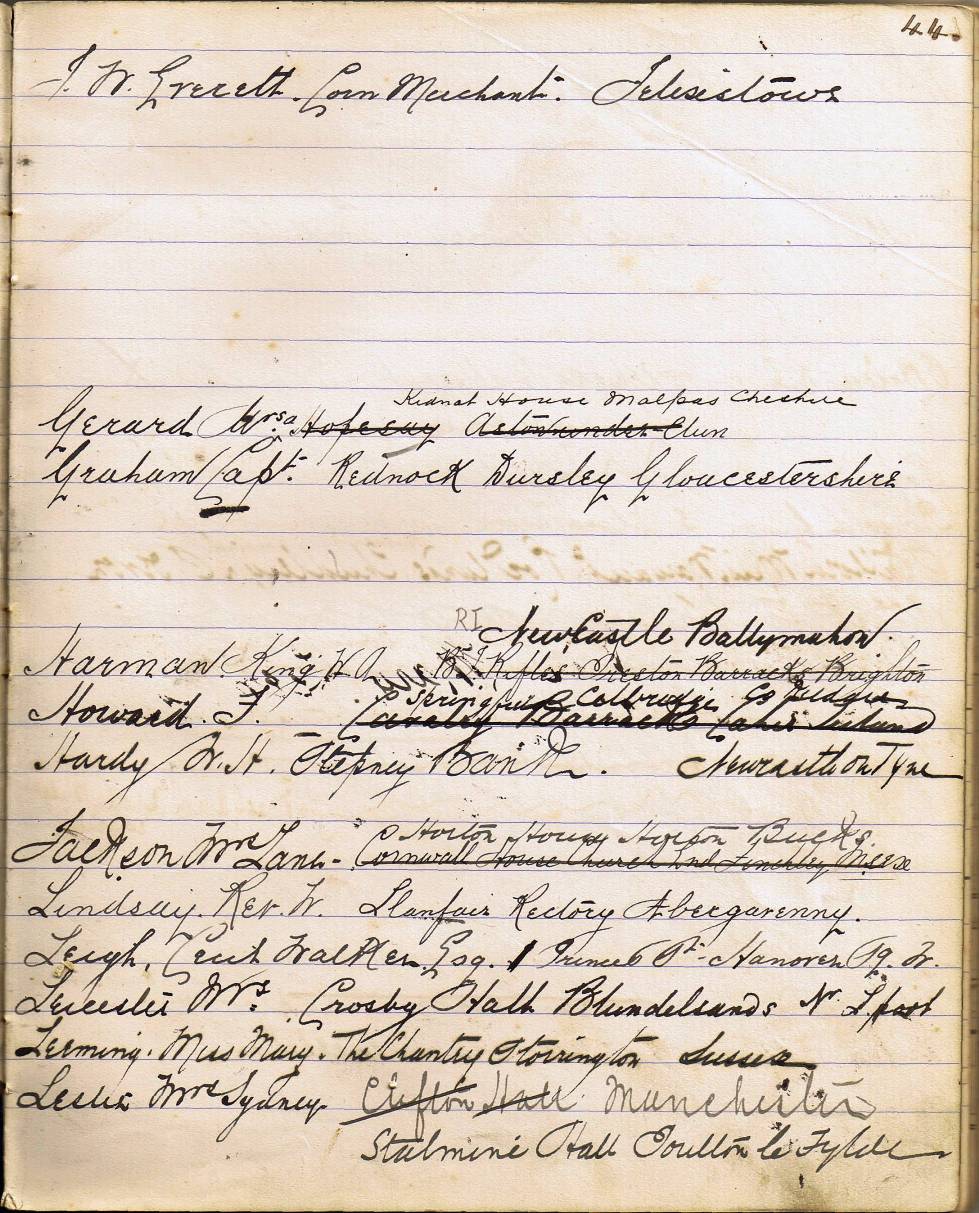 44.
J. W. Everett. Corn Merchant. Felixstowe
Kidnal House Malpas Cheshire
Gerard Mrs a Hopesay Aston under Clun
Graham Capt. Rednock Dursley Gloucestershire
RI NewCastle Ballymahon.
Harman King W. A. Rifles Preston Barracks Brighton
Springfield Celbridge Co
Howard. J. Cavalry Barracks Cahir Ireland
Hardy W. H. Stepney Bank. Newcastle on Tyne
Horton House Horton Bucks.
Jackson Mrs Lane- Cornwall House Church End Finchley
Lindsay. Rev. W. Llanfair Rectory Abergavenny.
Leigh. Cecil Walker Esq. 1 Princes St. Hanover Sq. W.
Leicester Mrs. Crosby Hall Blundelsands Nr. L.pool
Leeming. Miss Mary. The Chantry Storrington Sussex
Leslie Mrs Sydney. Clifton Hall Manchester
Stalmine Hall Poulton le Fylde